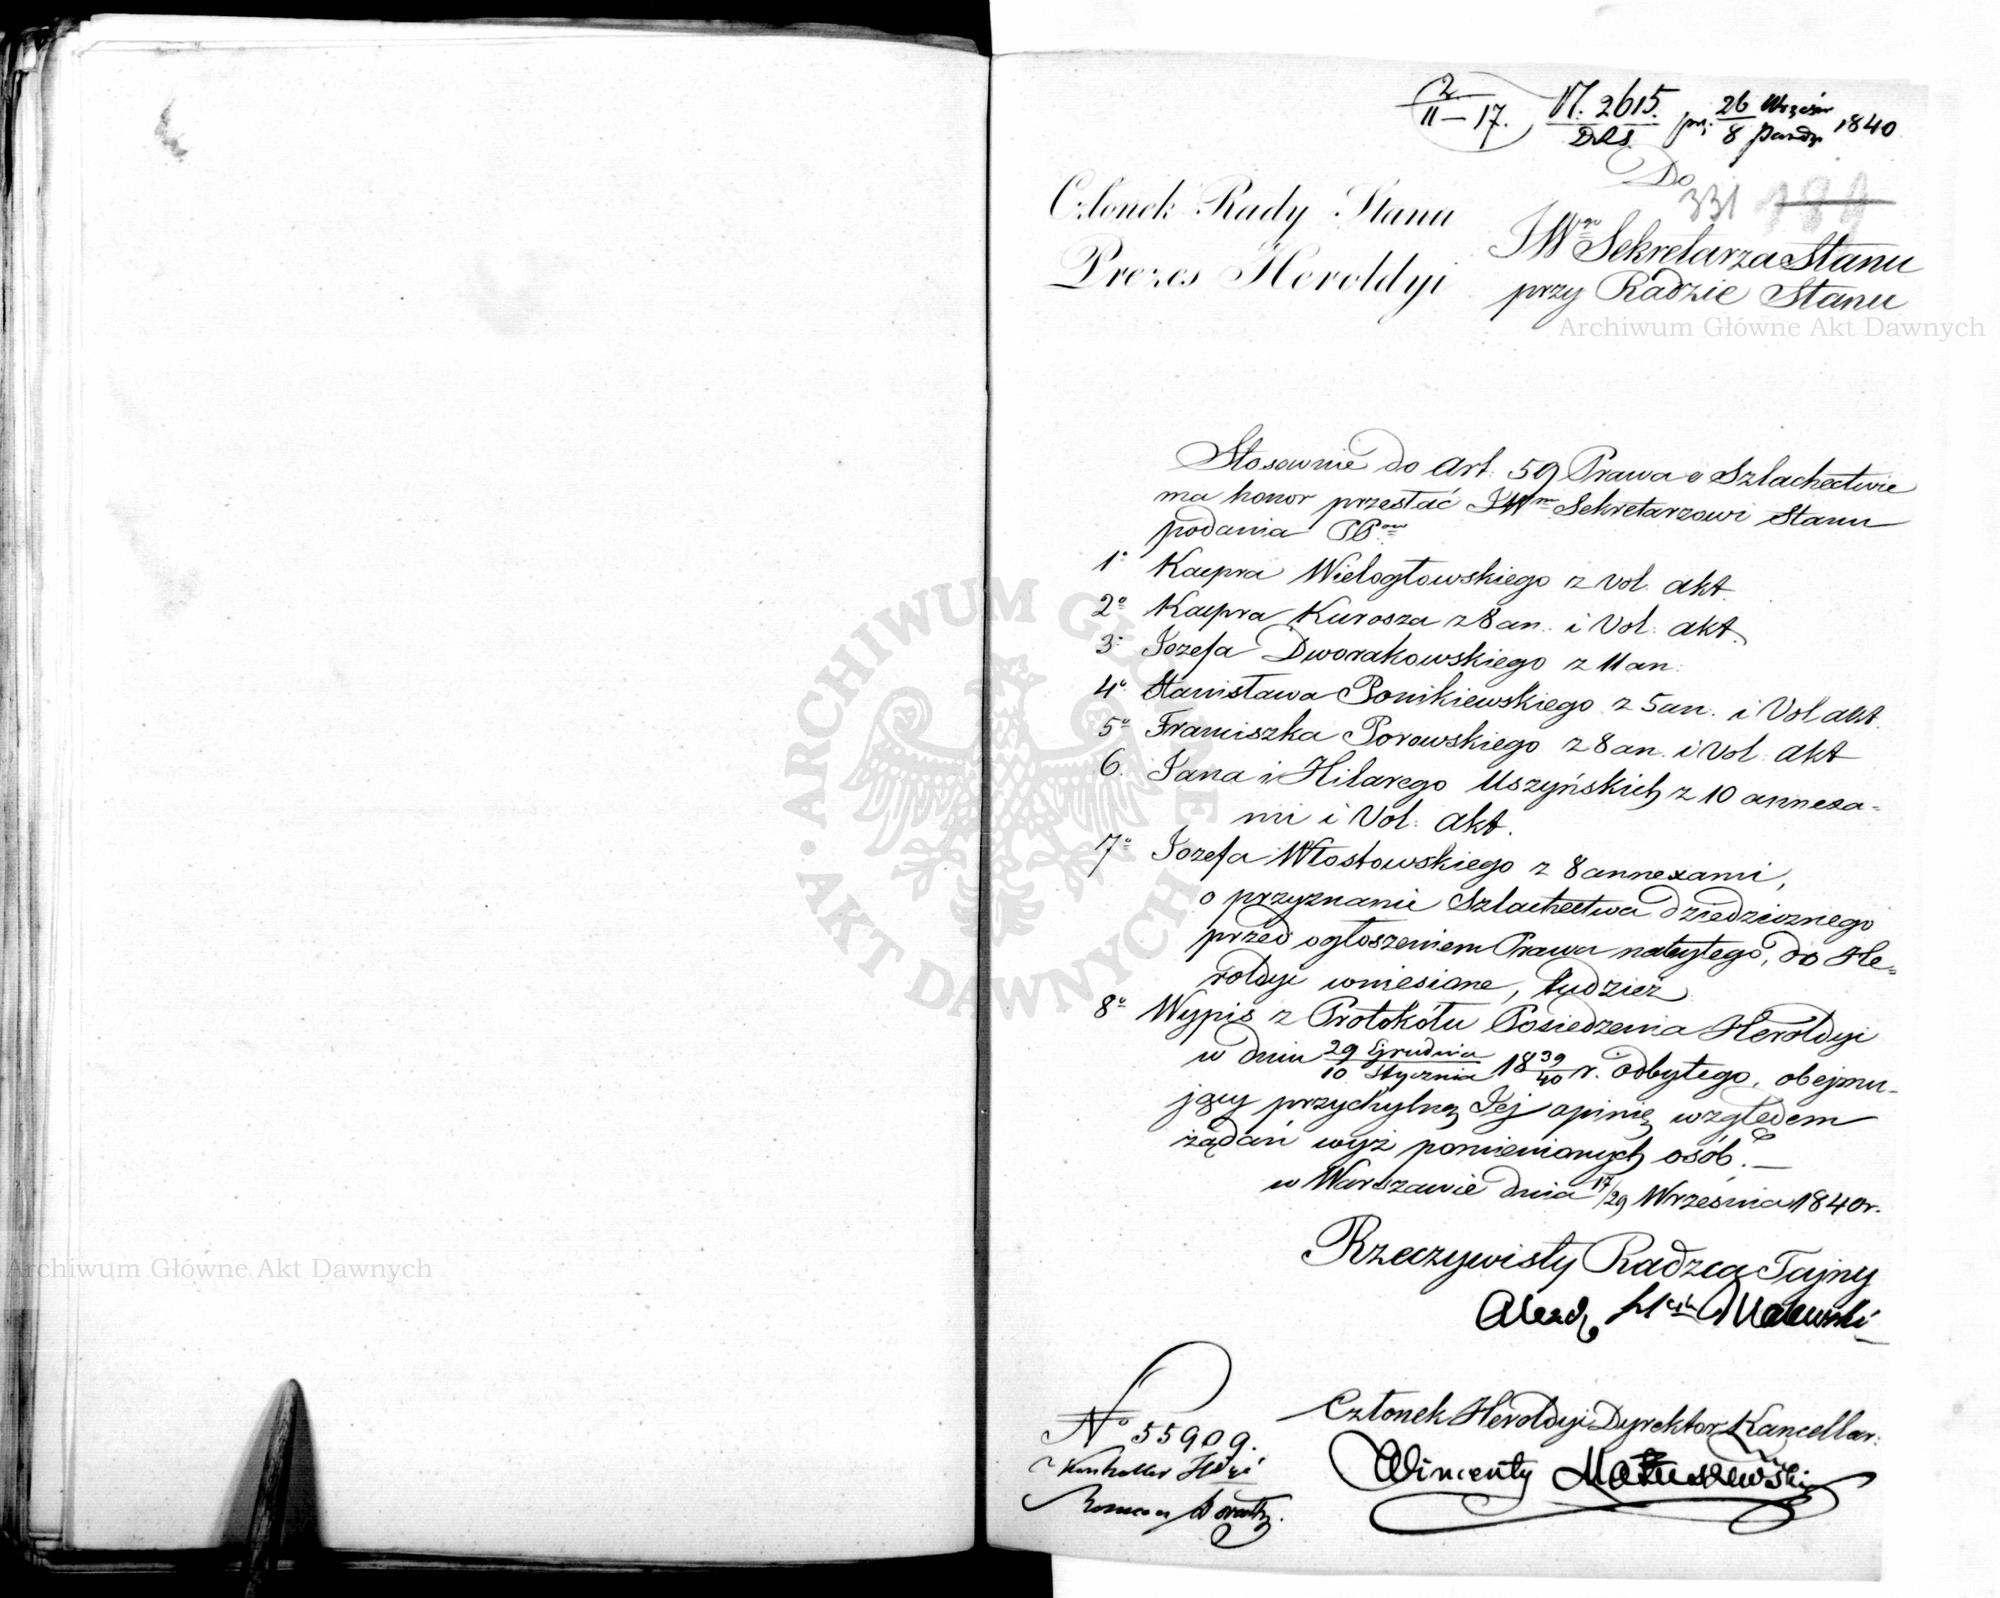 2
11 – 17.
N. 2615.
DRS.
prz: 26 Wrześn / 8 Paźdz 1840
Do
331
Członek Rady Stanu
Prezes Heroldyi
JWgo Sekretarza Stanu
przy Radzie Stanu
Archiwum Główne Akt Dawnych
Stosownie do Art. 59 Prawa o Szlachectwie
ma honor przesłać JWmu Sekretarzowi Stanu
podania PP.
1o Kacpra Wielogłowskiego z vol. akt.
2o Kacpra Kurosza z 8 an. i Vol: akt.
3o Jozefa Dworakowskiego z 11 an:
4o Stanisława Ponikiewskiego z 5 an. i Vol akt.
5o Franciszka Porowskiego z 8 an. i Vol: akt
6. Jana i Hilarego Uszyńskich z 10 annexa=
mi i Vol: akt.
7o Jozefa Włostowskiego z 8 annexami,
o przyznanie Szlachectwa dziedzicznego
przed ogłoszeniem Prawa nabytego, do He=
roldyi wniesione, tudzież
8o Wypis z Protokółu Posiedzenia Heroldyi
w dniu 29 Grudnia / 10 Stycznia 18 39/40 r. odbytego, obejmu-
jący przychylną Jej opinię względem
żądań wyż pomienionych osób. —
w Warszawie dnia 17/29 Września 1840 r.
Rzeczywisty Radzca Tajny
Archiwum Główne Akt Dawnych
Alexd. Hrab Walewski
Członek Heroldyi Dyrektor Kancellar:
Wincenty Matuszewski
No 55909.
Kontroller
Roman
ARCHIWUM GŁÓWNE AKT DAWNYCH